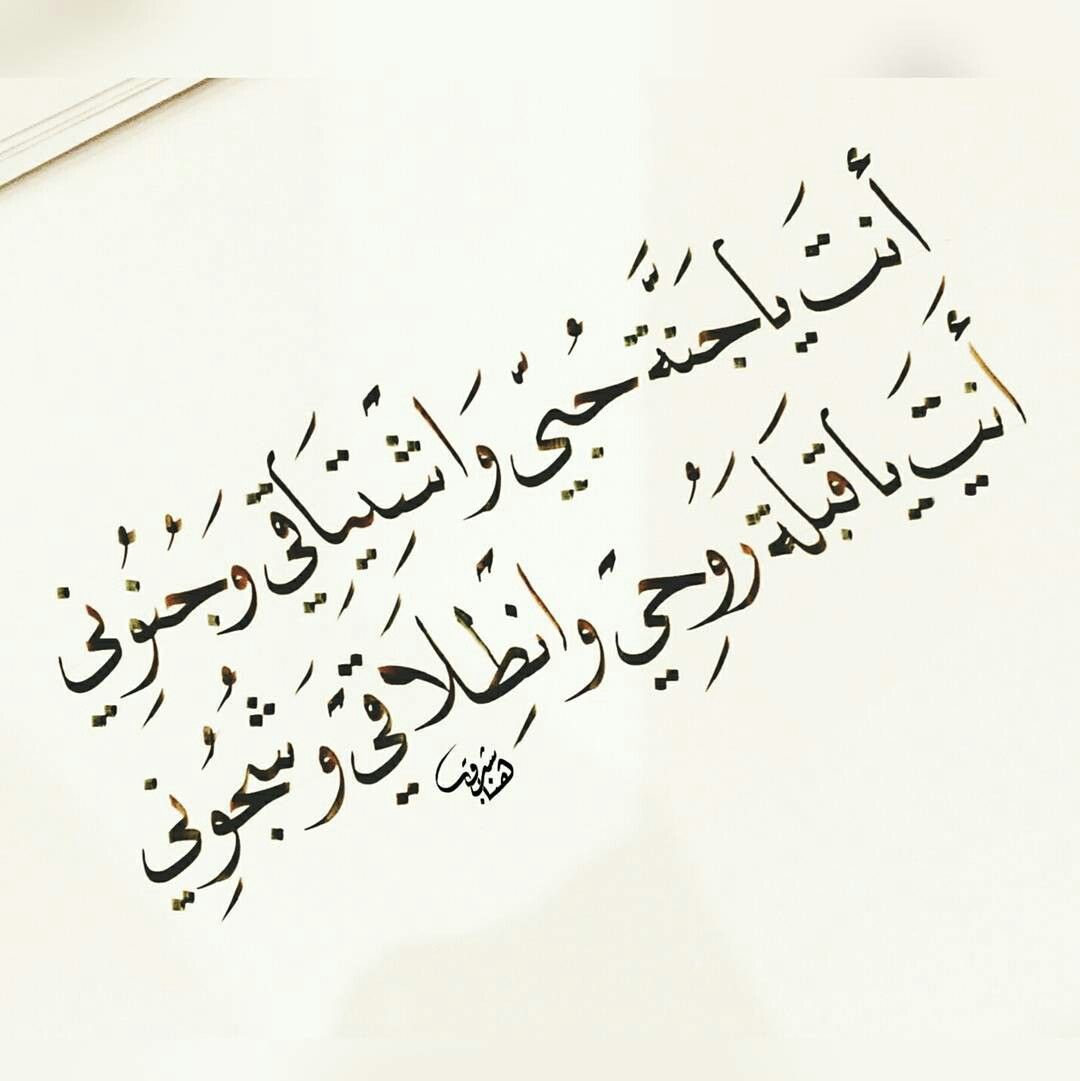 أنتَ يا جَنَّةَ حُبيّ وَاشْتِيَاقي وَجُنُوني
أنتَ يا قبلَةَ رُوَحِي وانْطِلَاقي وَشُجُوني